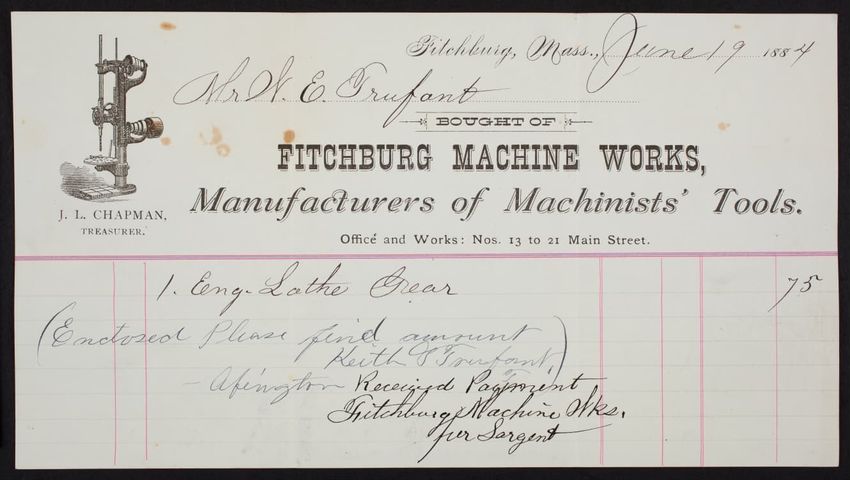 Fitchburg, Mass., June 19 1884
Mr W. E. Trufant
BOUGHT OF
FITCHBURG MACHINE WORKS,
Manufacturers of Machinists' Tools.
J. L. CHAPMAN,
TREASURER.
Office and Works: Nos. 13 to 21 Main Street.
1. Eng. Lathe Gear 75
(Enclosed Please find amount
Keith & Trufant)
- Abington
Received Payment
Fitchburg Machine Wks.
per Sargent